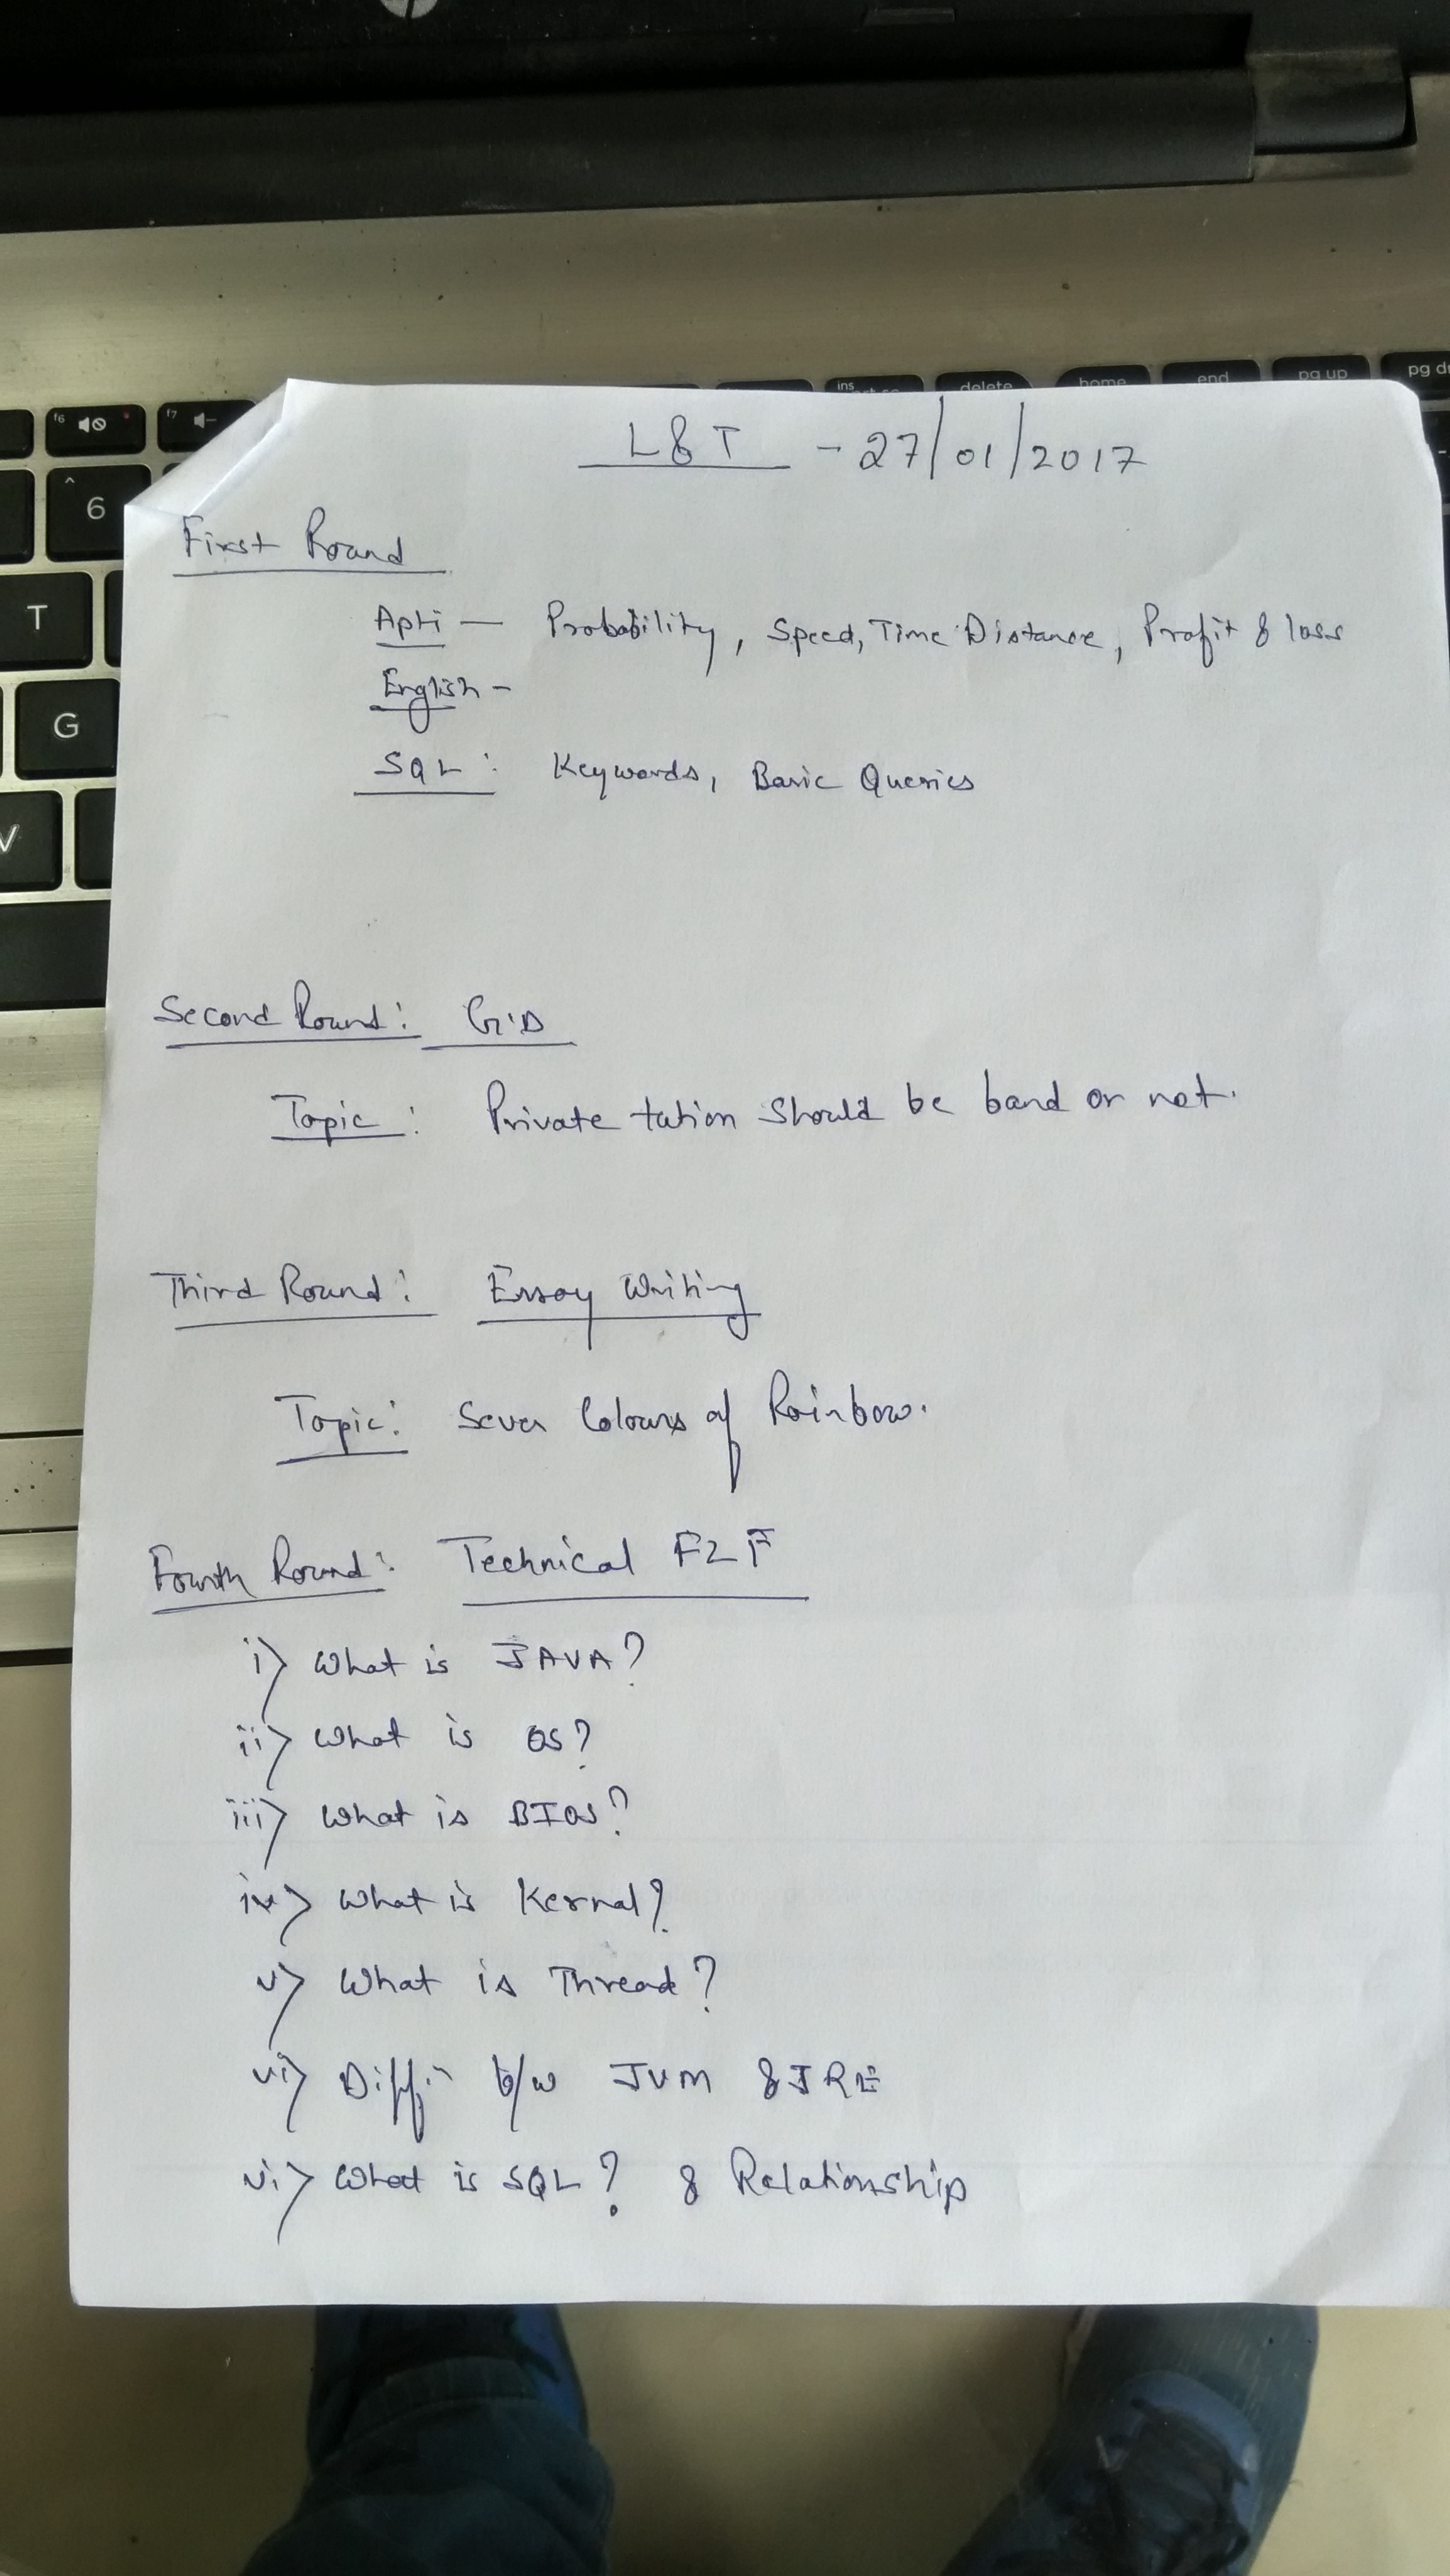 ins
delete
home
end
pg up
pg d
f6
f7
6
T
G
V
L & T - 27/01/2017
First Round
Apti — Probability, Speed, Time Distance, Profit & loss
English -
SQL : Keywords, Basic Queries
Second Round : G.D
Topic : Private tution Should be band or not.
Third Round : Essay Writing
Topic : Seven Colours of Rainbow.
Fourth Round : Technical F2F
i) What is JAVA?
ii) What is OS?
iii) What is BIOS?
iv) What is Kernal?
v) What is Thread?
vi) Diff. b/w JVM & JRE
vi) What is SQL? & Relationship